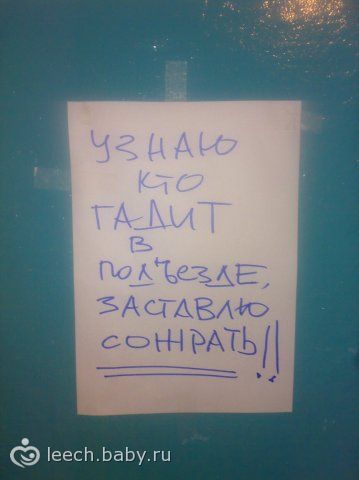 УЗНАЮ
КТО
ГАДИТ
В
ПОДЪЕЗДЕ,
ЗАСТАВЛЮ
СОЖРАТЬ!!
leech.baby.ru